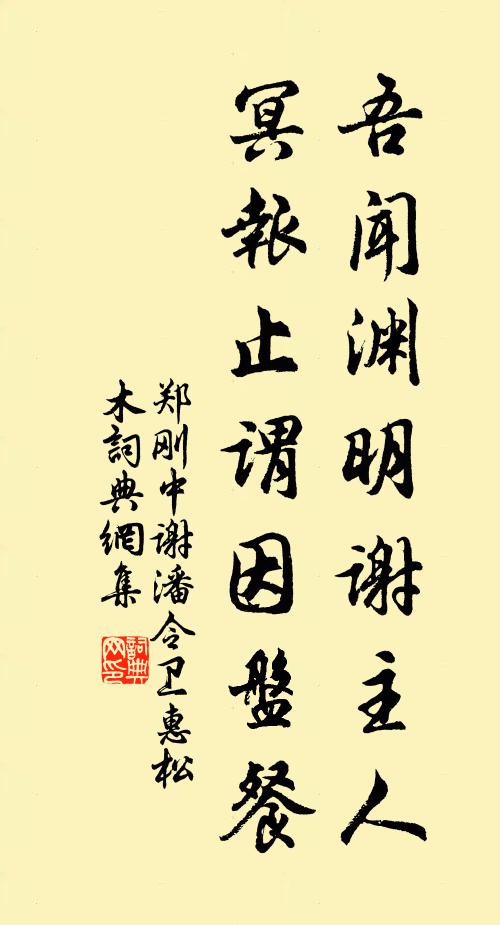 吾闻渊明谢主人
冥報止谓因盤餐
郑刚中谢潘令卫惠松
木詞典網集
詞典网印